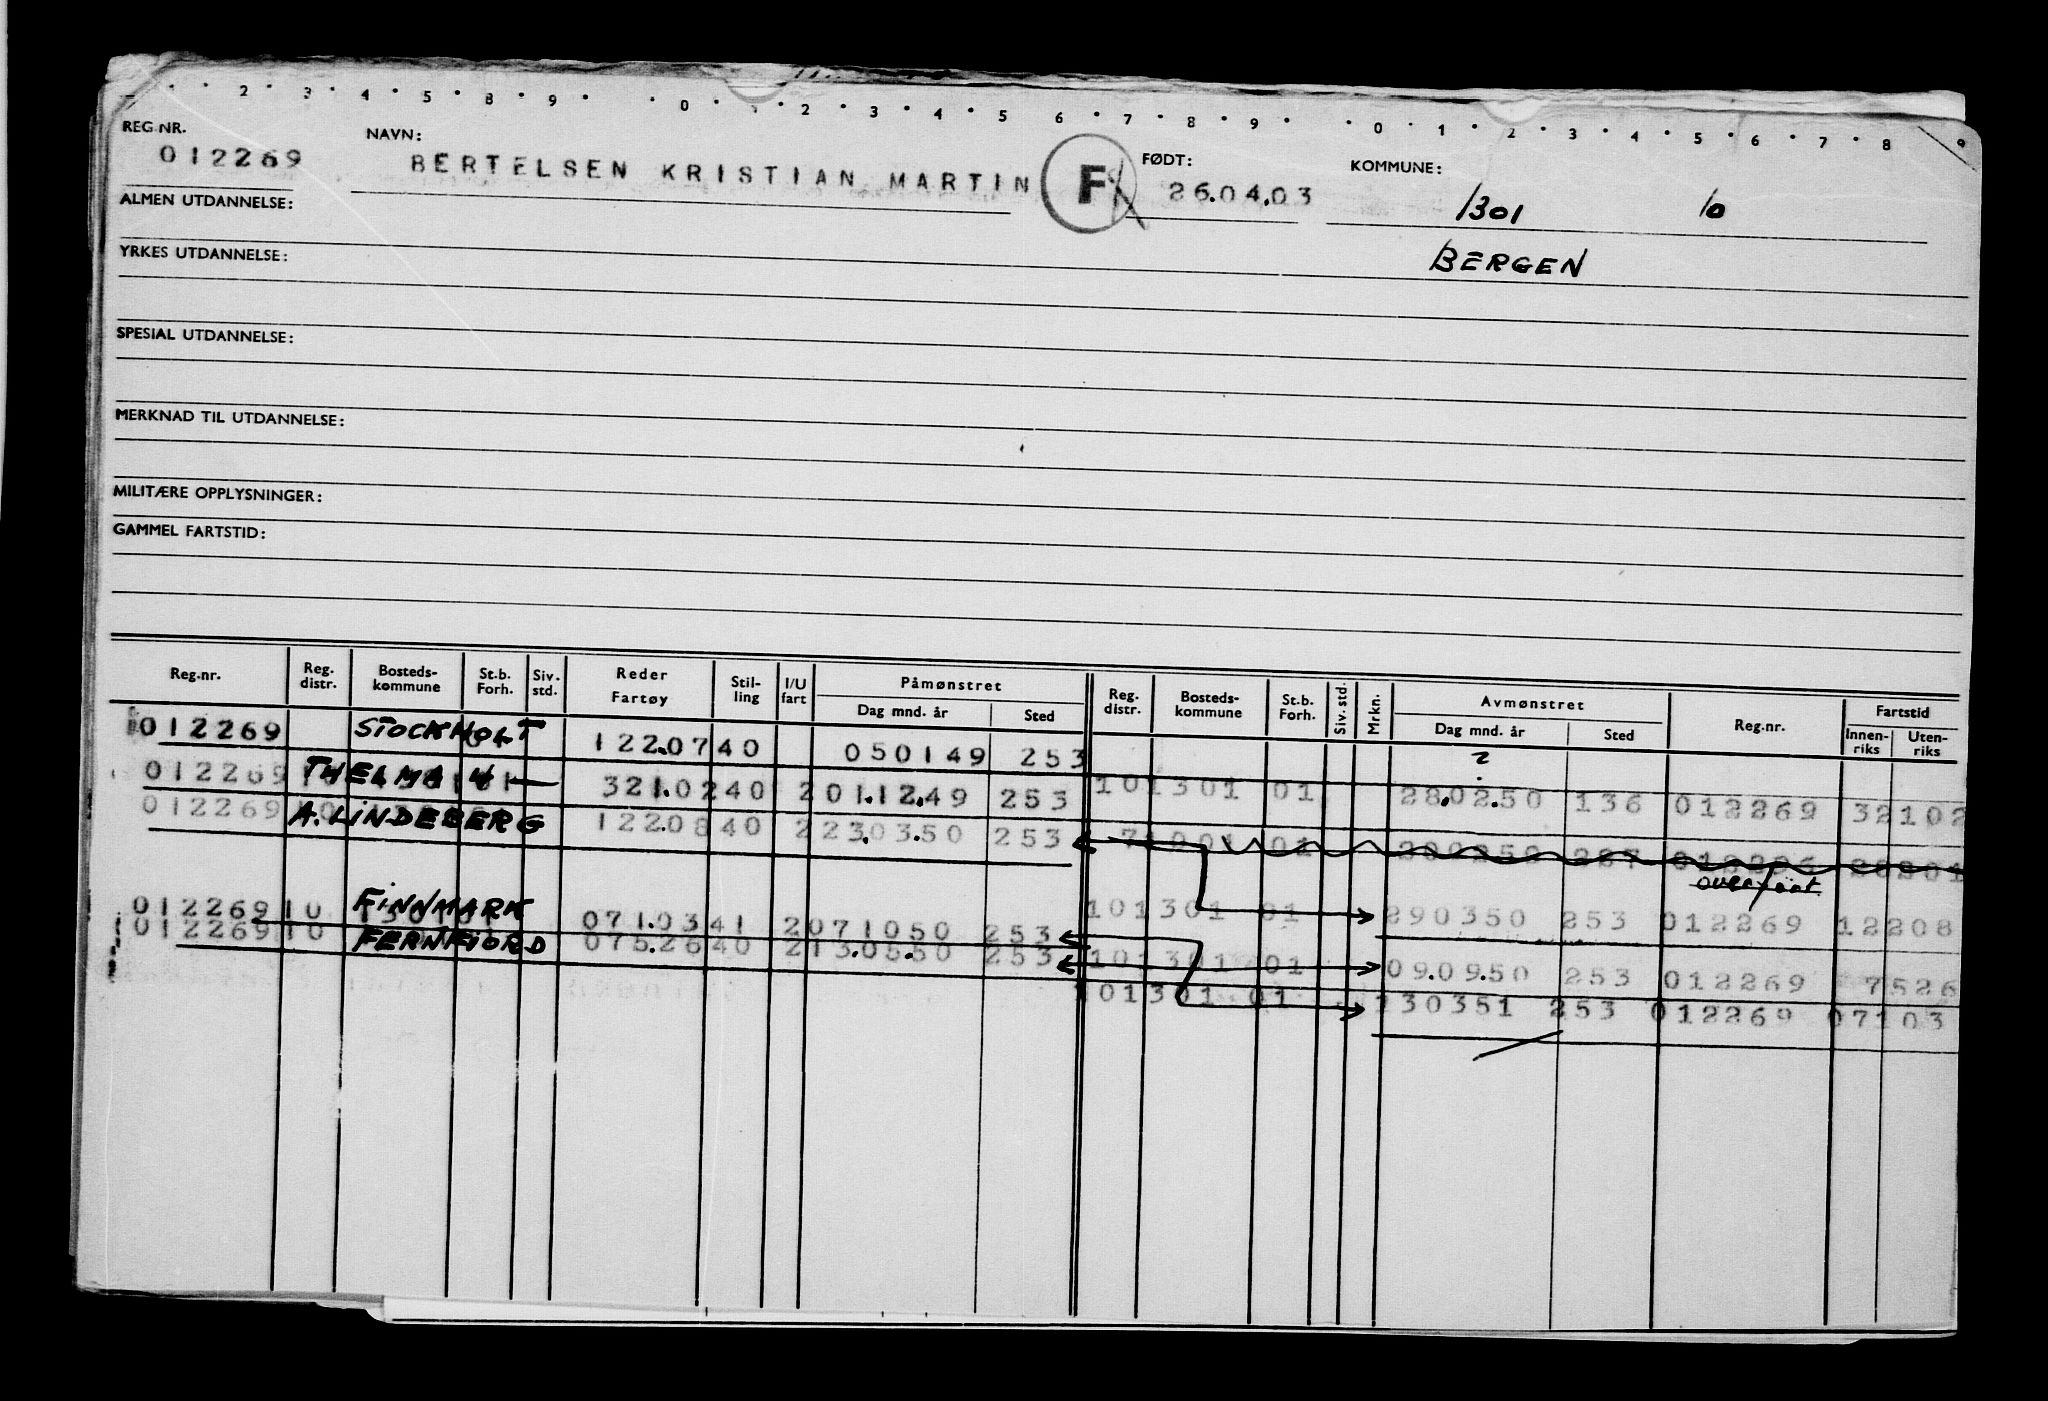 2 3 4 5 8 9 0 1 2 3 4 5 6 7 8 9 0 1 2 3 4 5 6 7 8 9
REG.NR. NAVN: FØDT: KOMMUNE:
012269 BERTELSEN KRISTIAN MARTIN F 26.04.03 1301 10
ALMEN UTDANNELSE:
YRKES UTDANNELSE: BERGEN
SPESIAL UTDANNELSE:
MERKNAD TIL UTDANNELSE:
MILITÆRE OPPLYSNINGER:
GAMMEL FARTSTID:
Reg.nr. Reg. distr. Bosteds-kommune St.b. Forh. Siv. std. Reder Fartøy Stil-ling I/U fart Påmønstret Dag mnd. år Sted Reg. distr. Bosteds-kommune St.b. Forh. Siv. std. Mrkn. Avmønstret Dag mnd. år Sted Reg.nr. Fartstid Innen-riks Uten-riks
012269 STOCKHOLT 122.0740 050149 253 2
012269 THELMA 321.0240 201.12.49 253 101301 01 28.02.50 136 012269 32102
012269 A. LINDEBERG 122.0840 223.03.50 253 01 280250 227
overført
012269 10 FINNMARK 071.0341 2071050 253 101301 01 290350 253 012269 12208
012269 10 FERNFJORD 075.2640 213.05.50 253 101301 01 09.09.50 253 012269 7526
101301 01 130351 253 012269 07103